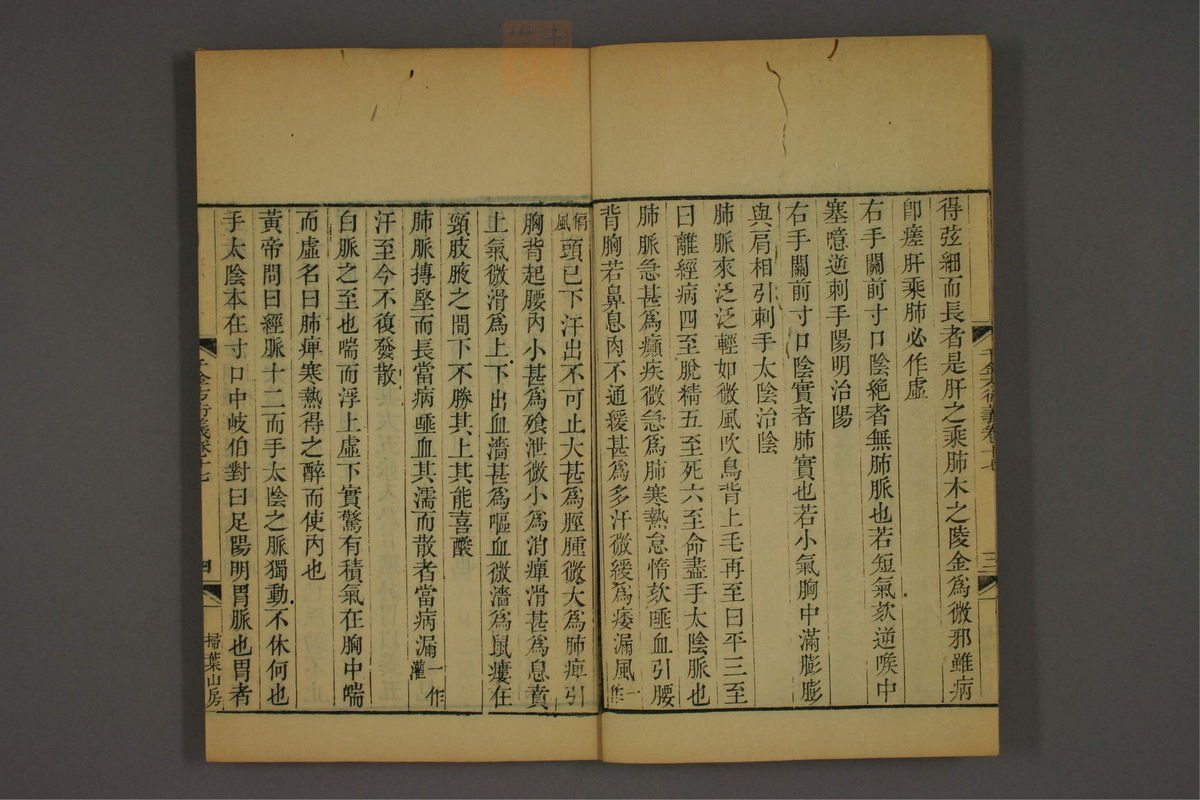 得弦細而長者是肝之乘肺木之陵金爲微邪雖病
卽瘥肝乘肺必作虛
右手關前寸口陰絕者無肺脈也若短氣欬逆喉中
塞噫逆刺手陽明治陽
右手關前寸口陰實者肺實也若少氣胸中滿膨膨
與肩相引刺手太陰治陰
肺脈來泛泛輕如微風吹鳥背上毛再至曰平三至
曰離經病四至脫精五至死六至命盡手太陰脈也
肺脈急甚爲癲疾微急爲肺寒熱怠惰欬唾血引腰
背胸若鼻息肉不通緩甚爲多汗微緩爲痿漏風一作
三
偏風頭已下汗出不可止大甚爲脛腫微大爲肺痺引
胸背起腰內小甚爲飧泄微小爲消癉滑甚爲息賁
上氣微滑爲上下出血濇甚爲嘔血微濇爲鼠瘻在
頸肢腋之間下不勝其上其能喜酸
肺脈搏堅而長當病唾血其濡而散者當病漏一作灌
汗至今不復發散
白脈之至也喘而浮上虛下實驚有積氣在胸中喘
而虛名曰肺痺寒熱得之醉而使內也
黃帝問曰經脈十二而手太陰之脈獨動不休何也
手太陰本在寸口中岐伯對曰足陽明胃脈也胃者
千金方衍義卷十七
四
掃葉山房